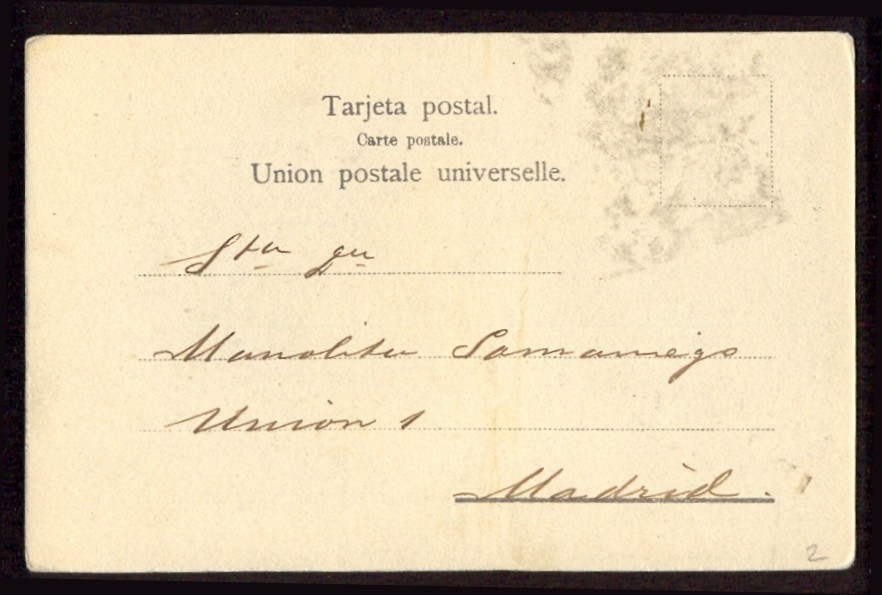 Tarjeta postal.
Carte postale.
Union postale universelle.
Sta Dña
Manolita Samaniego
Union 1
Madrid.
2